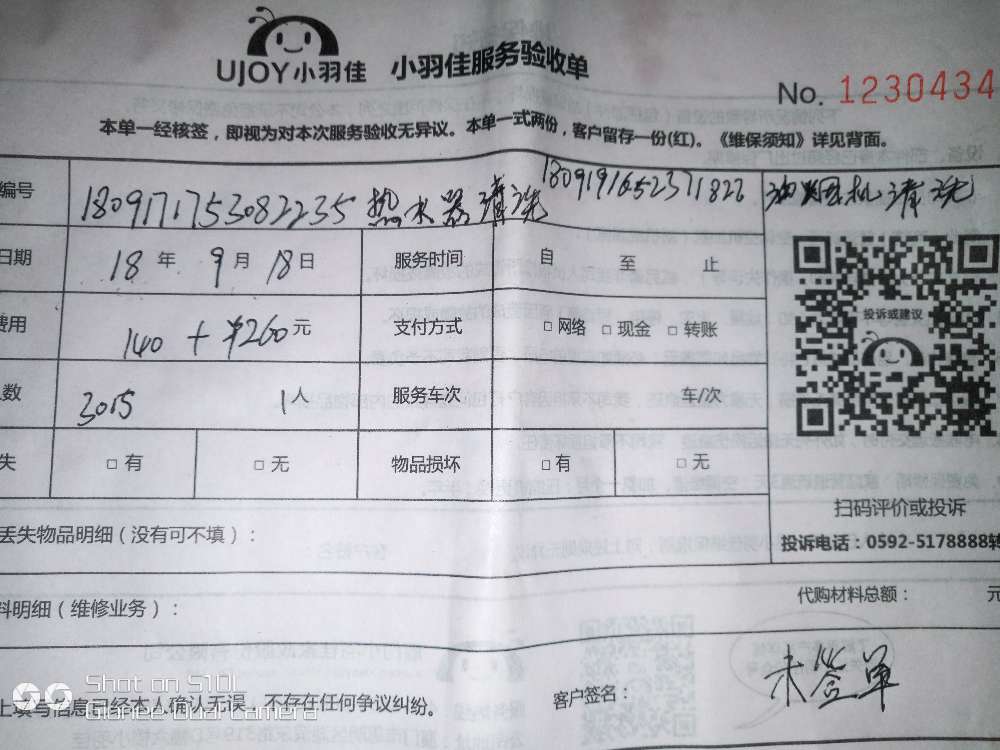 UJOY小羽佳 小羽佳服务验收单
No. 1230434
本单一经核签，即视为对本次服务验收无异议。本单一式两份，客户留存一份(红)。《维保须知》详见背面。
编号 1809171753082235 热水器清洗 1809191652371822 油烟机清洗
日期 18 年 9 月 18 日 服务时间 自 至 止
费用 140 + ¥260 元 支付方式 □ 网络 □ 现金 □ 转账
投诉或建议
数 3015 1 人 服务车次 车/次
失 □ 有 □ 无 物品损坏 □ 有 □ 无
扫码评价或投诉
丢失物品明细（没有可不填）：
投诉电话：0592-5178888转
料明细（维修业务）：
代购材料总额： 元
上填写信息已经本人确认无误，不存在任何争议纠纷。
客户签名： 未签单
Shot on S10L
Gionee Dual Camera